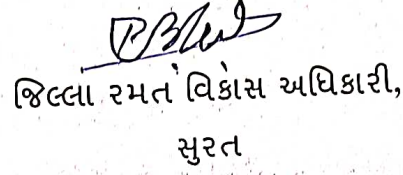 જિલ્લા રમત વિકાસ અધિકારી,
સુરત